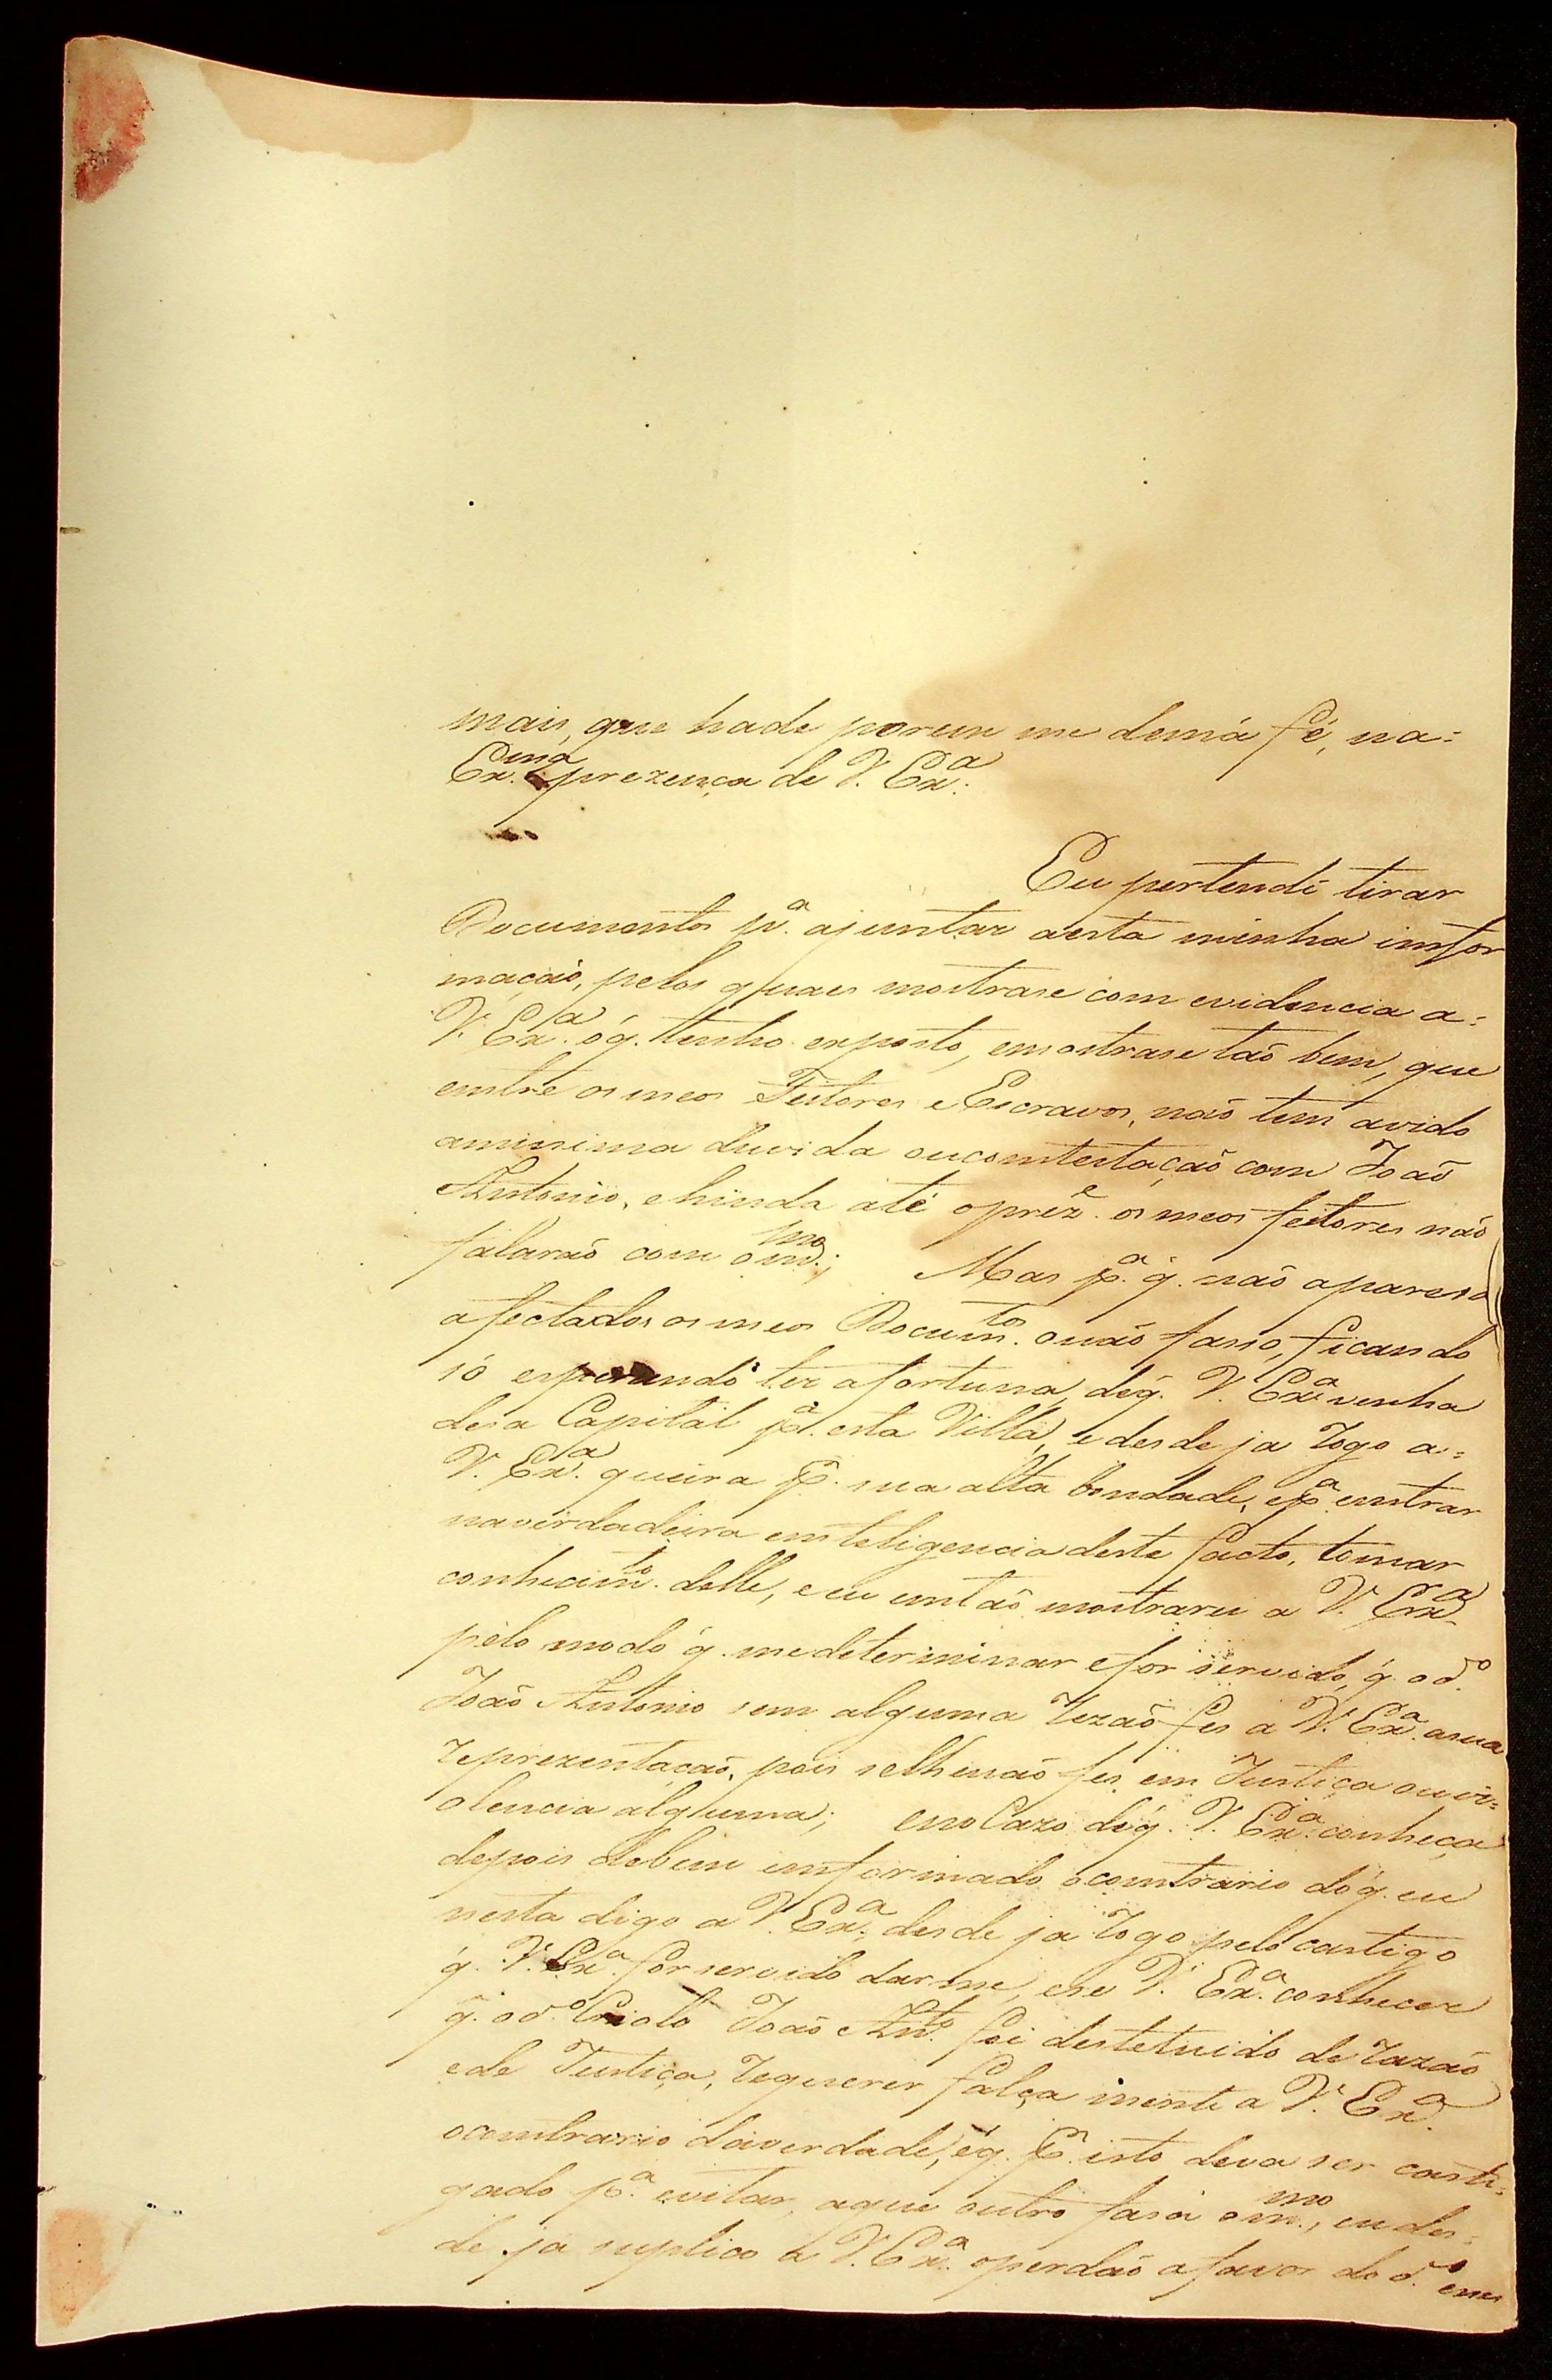 mais, que hade porem me demá fé, na=
Ex.ma prezença de V. Ex.a
Eu pertendi tirar
Documentos p.a ajuntar aesta minha imfor
mação, pelos quaes mostrase com evidencia a=
V. Ex.a óq. tenho exposto, emostrase tão bem, que
emtre os meos Feitores e Escravos, não tem avido
aminima duvida oucomtestação com João
Antonio, ehinda até oprez.e os meos feitores não
falarão com om.mo; Mas p.a q. não apareса
afectados os meos Docum.tos onão faso, ficando
só esperando ter afortuna, déq. V. Ex.a venha
desa Capital p.a esta Villa, e desde ja rogo a=
V. Ex.a queira p.r sua alta bondade, ep.a emtrar
naverdadeira emteligencia deste facto, tomar
conhecim.to delle, e eu emtão mostrarei a V. Ex.a
pelo modo q. medeterminar efor servido, q. o d.o
João Antonio sem alguma rezão fes a V. Ex.a asua
reprezentação, pois selhenão fes em Justiça ouvi=
olencia alguma; eno Cazo déq. V. Ex.a conheça
depois debem imformado ocomtrario dóq. eu
nesta digo a V. Ex.a, desde ja rogo pelo castigo
q. V. Ex.a for servido darme, ese V. Ex.a conhecer
q. o d.o Criolo João Ant.o foi destetuido de razão
ede Justiça, requerer falça mente a V. Ex.a
ocomtrario daverdade, éq. p.r isto deva ser casti=
gado p.a evitar, aque outro fasa om.mo, eu des=
de ja suplico a V. Ex.a operdão afavor do d.o